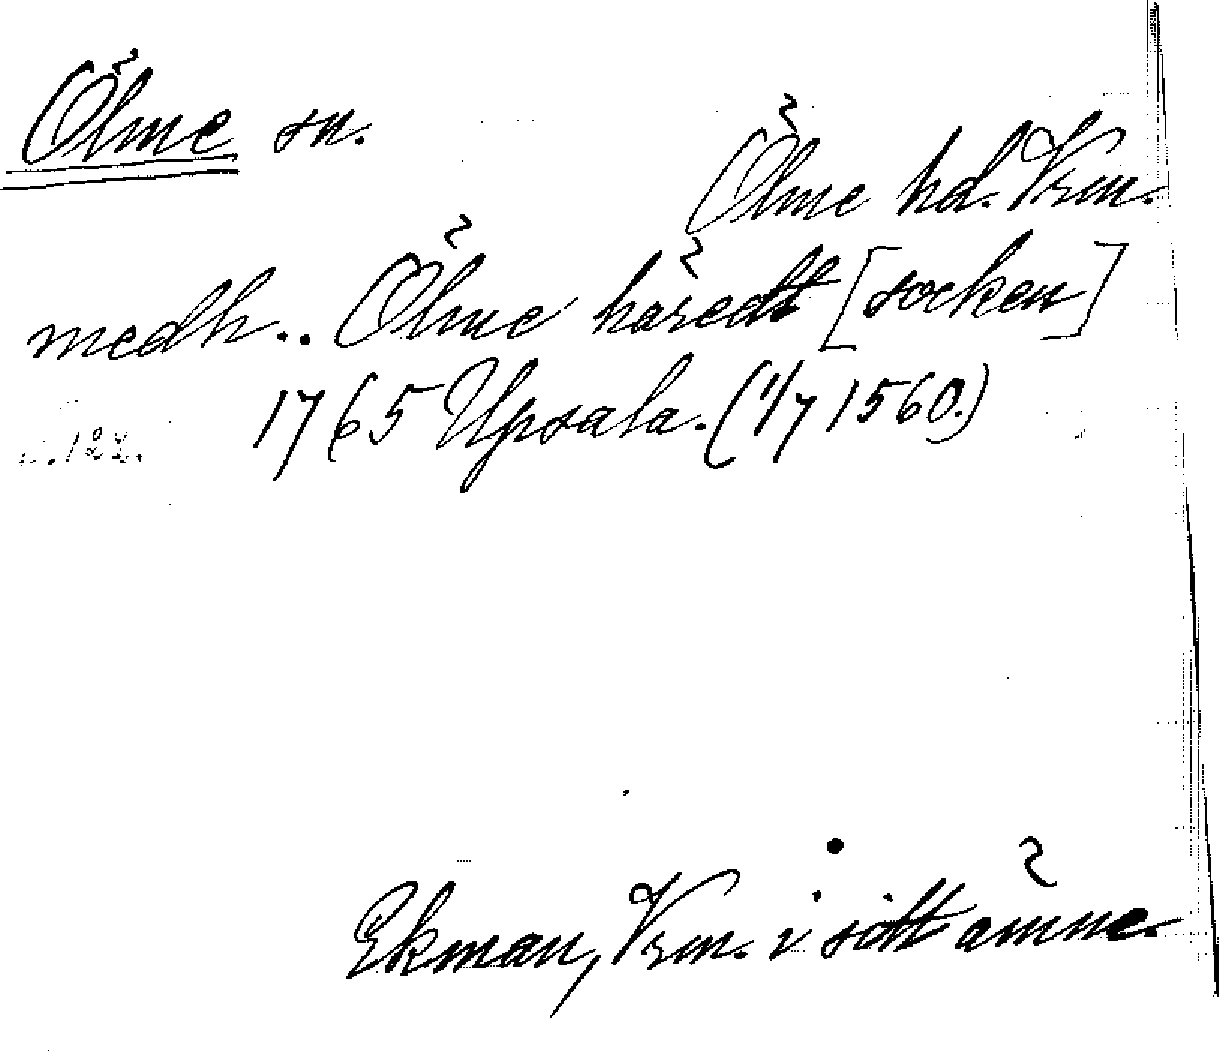 Ölme sn.
Ölme hd. Vrm.
medh.. Ölme häredt [socken]
1765 Upsala. (1/7 1560.)
s. 122.
Ekman, Vrm. i sitt ämne.